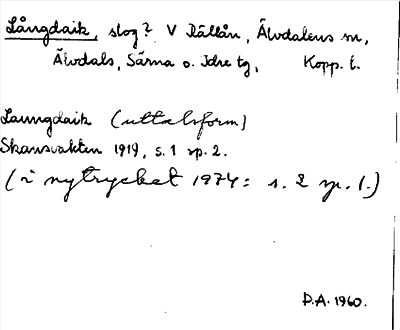 Långdaik, skog? V Rällån, Älvdalens sn,
Älvdals, Särna o. Idre tg, Kopp. l.
Laungdaik (uttalsform)
Skansvakten 1919, s. 1 sp. 2.
(i nytrycket 1974: s. 2 sp. 1.)
D.A. 1960.